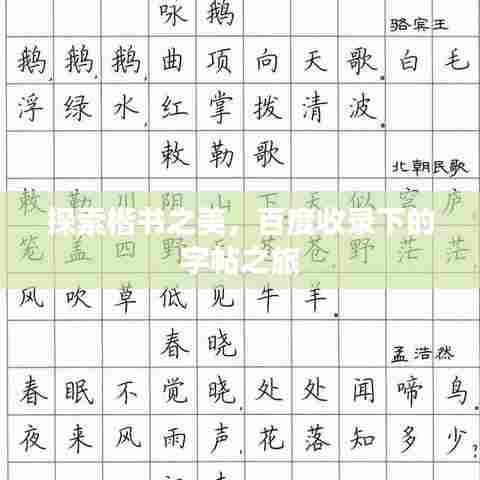 咏鹅
骆宾王
鹅,鹅,鹅,曲项向天歌。白毛
浮绿水,红掌拨清波。
敕勒歌
北朝民歌
敕勒川阴山下天似穹庐,
探索楷书之美，百度收录下的
字帖之旅
笼盖四野苍苍,野茫茫,
风吹草低见牛羊。
春晓
孟浩然
春眠不觉晓,处处闻啼鸟。
夜来风雨声,花落知多少?